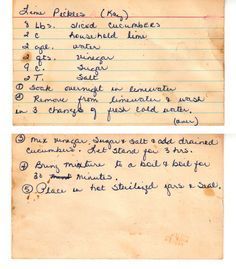 Lime Pickles (Kay)
8 lbs. sliced cucumbers
2 c household lime
2 gal. water
2 qts. vinegar
9 c. Sugar
2 T. Salt
① Soak overnight in limewater
② Remove from limewater & wash
in 3 changes of fresh cold water.
(over)
③ Mix vinegar, Sugar & Salt & add drained
cucumbers. Let Stand for 3 hrs.
④ Bring mixture to a boil & boil for
30 minutes.
⑤ Place in hot sterilized jars & seal.